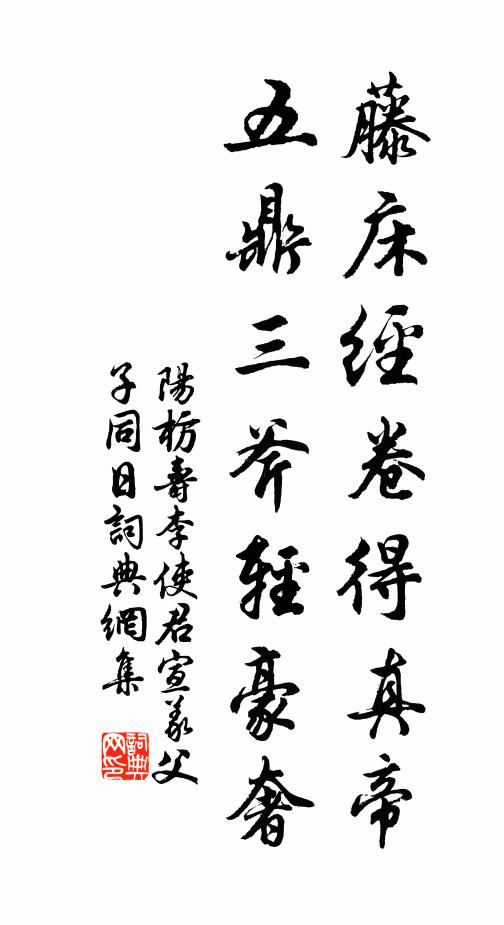 藤床經卷得真帝
五鼎三斧輕豪奢
陽枋壽李使君宣義父
子同日詞典網集
詞典网印